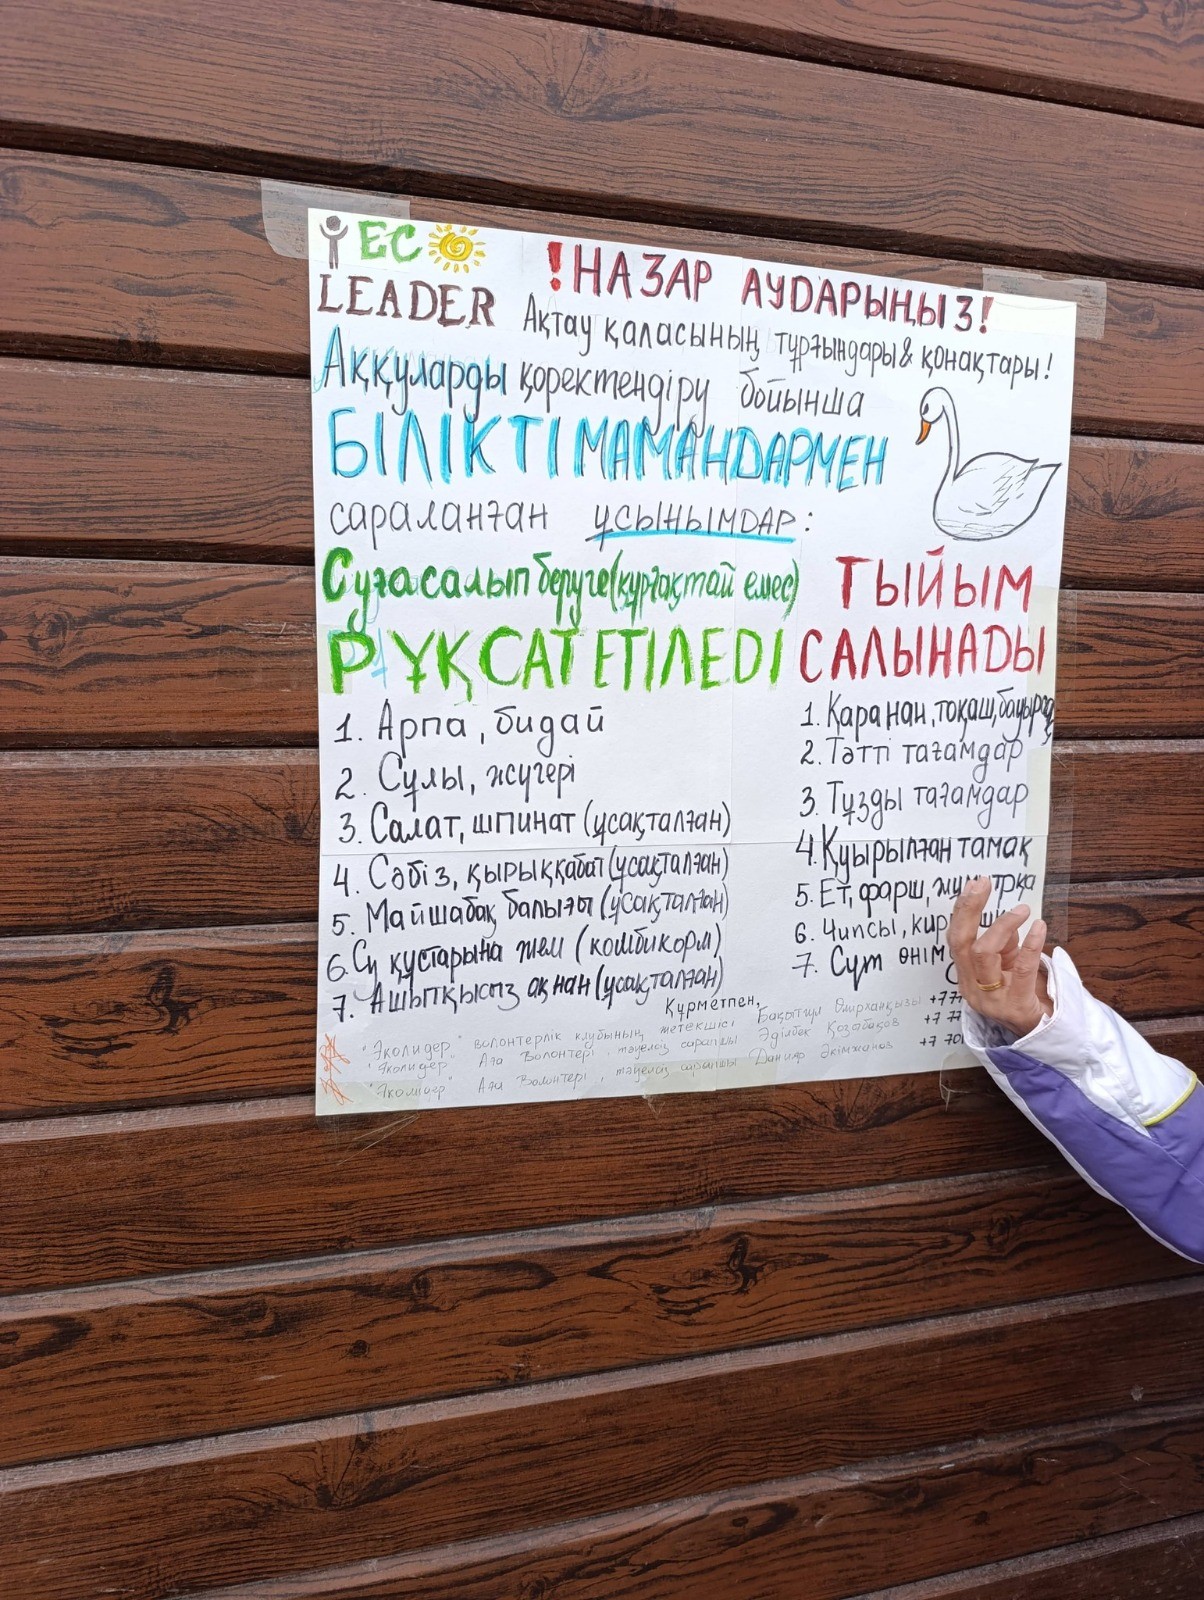 ECO
LEADER
!НАЗАР АУДАРЫҢЫЗ!
Ақтау қаласының тұрғындары & қонақтары!
Аққуларды қоректендіру бойынша
БІЛІКТІ МАМАНДАРМЕН
сараланған ұсынымдар:
Суға салып беруге (құрғақтай емес)
РҰҚСАТ ЕТІЛЕДІ
1. Арпа, бидай
2. Сұлы, жүгері
3. Салат, шпинат (ұсақталған)
4. Сәбіз, қырыққабат (ұсақталған)
5. Майшабақ балығы (ұсақталған)
6. Су құстарына жем (комбикорм)
7. Ашытқысыз ақ нан (ұсақталған)
ТЫЙЫМ
САЛЫНАДЫ
1. Қара нан, тоқаш,
2. Тәтті тағамдар
3. Тұзды тағамдар
4. Қуырылған тамақ
5. Ет, фарш,
6. Чипсы,
7. Сүт
Құрметпен,
"Эколидер" волонтерлік клубының жетекшісі Бақытгүл Омирханқызы +777
"Эколидер" Аға волонтері, тәуелсіз сарапшы Әділбек Қозабаев +7 77
"Эколидер" Аға волонтері, тәуелсіз сарапшы Данияр Әкімжанов +7 701